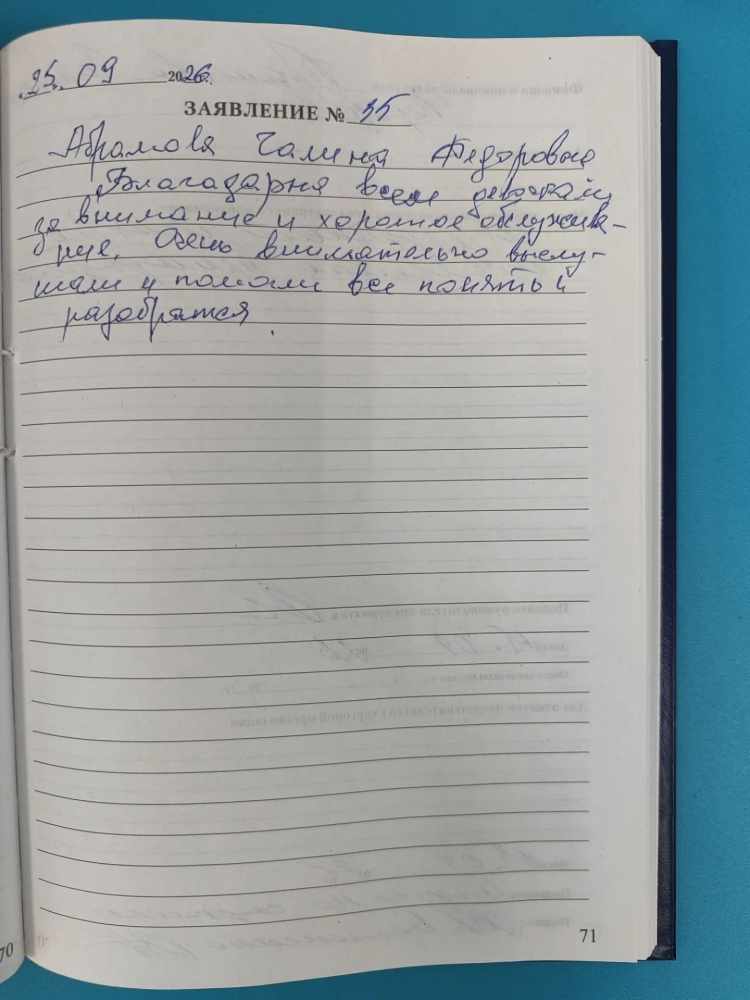 25. 09 2026г.
ЗАЯВЛЕНИЕ № 35
Абрамова Галина Федоровна
Благадарня всем девочкам
за внимание и хорошое обслужива-
ние. Очень внимательно выслу-
шали и помогли все понять и
разобратся.
71
70